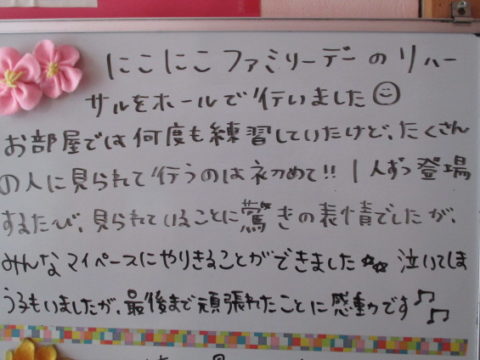 にこにこファミリーデーのリハー
サルをホールで行いました☺
お部屋では何度も練習していたけど、たくさん
の人に見られて行うのは初めて!! 1人ずつ登場
するたび、見られていることに驚きの表情でしたが、
みんなマイペースにやりきることができました☆☆ 泣いてしま
う子もいましたが、最後まで頑張れたことに感動です♫♫